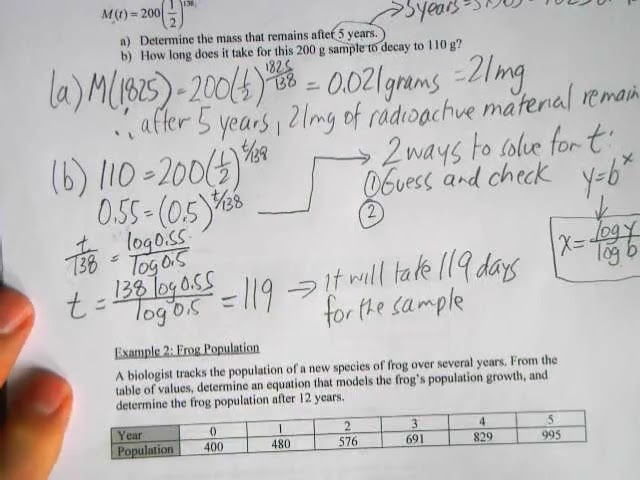 M(t) = 200(1/2)^t/138.
5 years =
a) Determine the mass that remains after 5 years.
b) How long does it take for this 200 g sample to decay to 110 g?
(a) M(1825) = 200(1/2)^1825/138 = 0.021 grams = 21mg
∴ after 5 years, 21mg of radioactive material remain
(b) 110 = 200(1/2)^t/138 → 2 ways to solve for t:
① Guess and check y=b^x
0.55 = (0.5)^t/138 ②
t/138 = log0.55/log0.5 x = log y/log b
t = 138 log0.55/log0.5 = 119 → it will take 119 days
for the sample
Example 2: Frog Population
A biologist tracks the population of a new species of frog over several years. From the
table of values, determine an equation that models the frog's population growth, and
determine the frog population after 12 years.
Year 0 1 2 3 4 5
Population 400 480 576 691 829 995